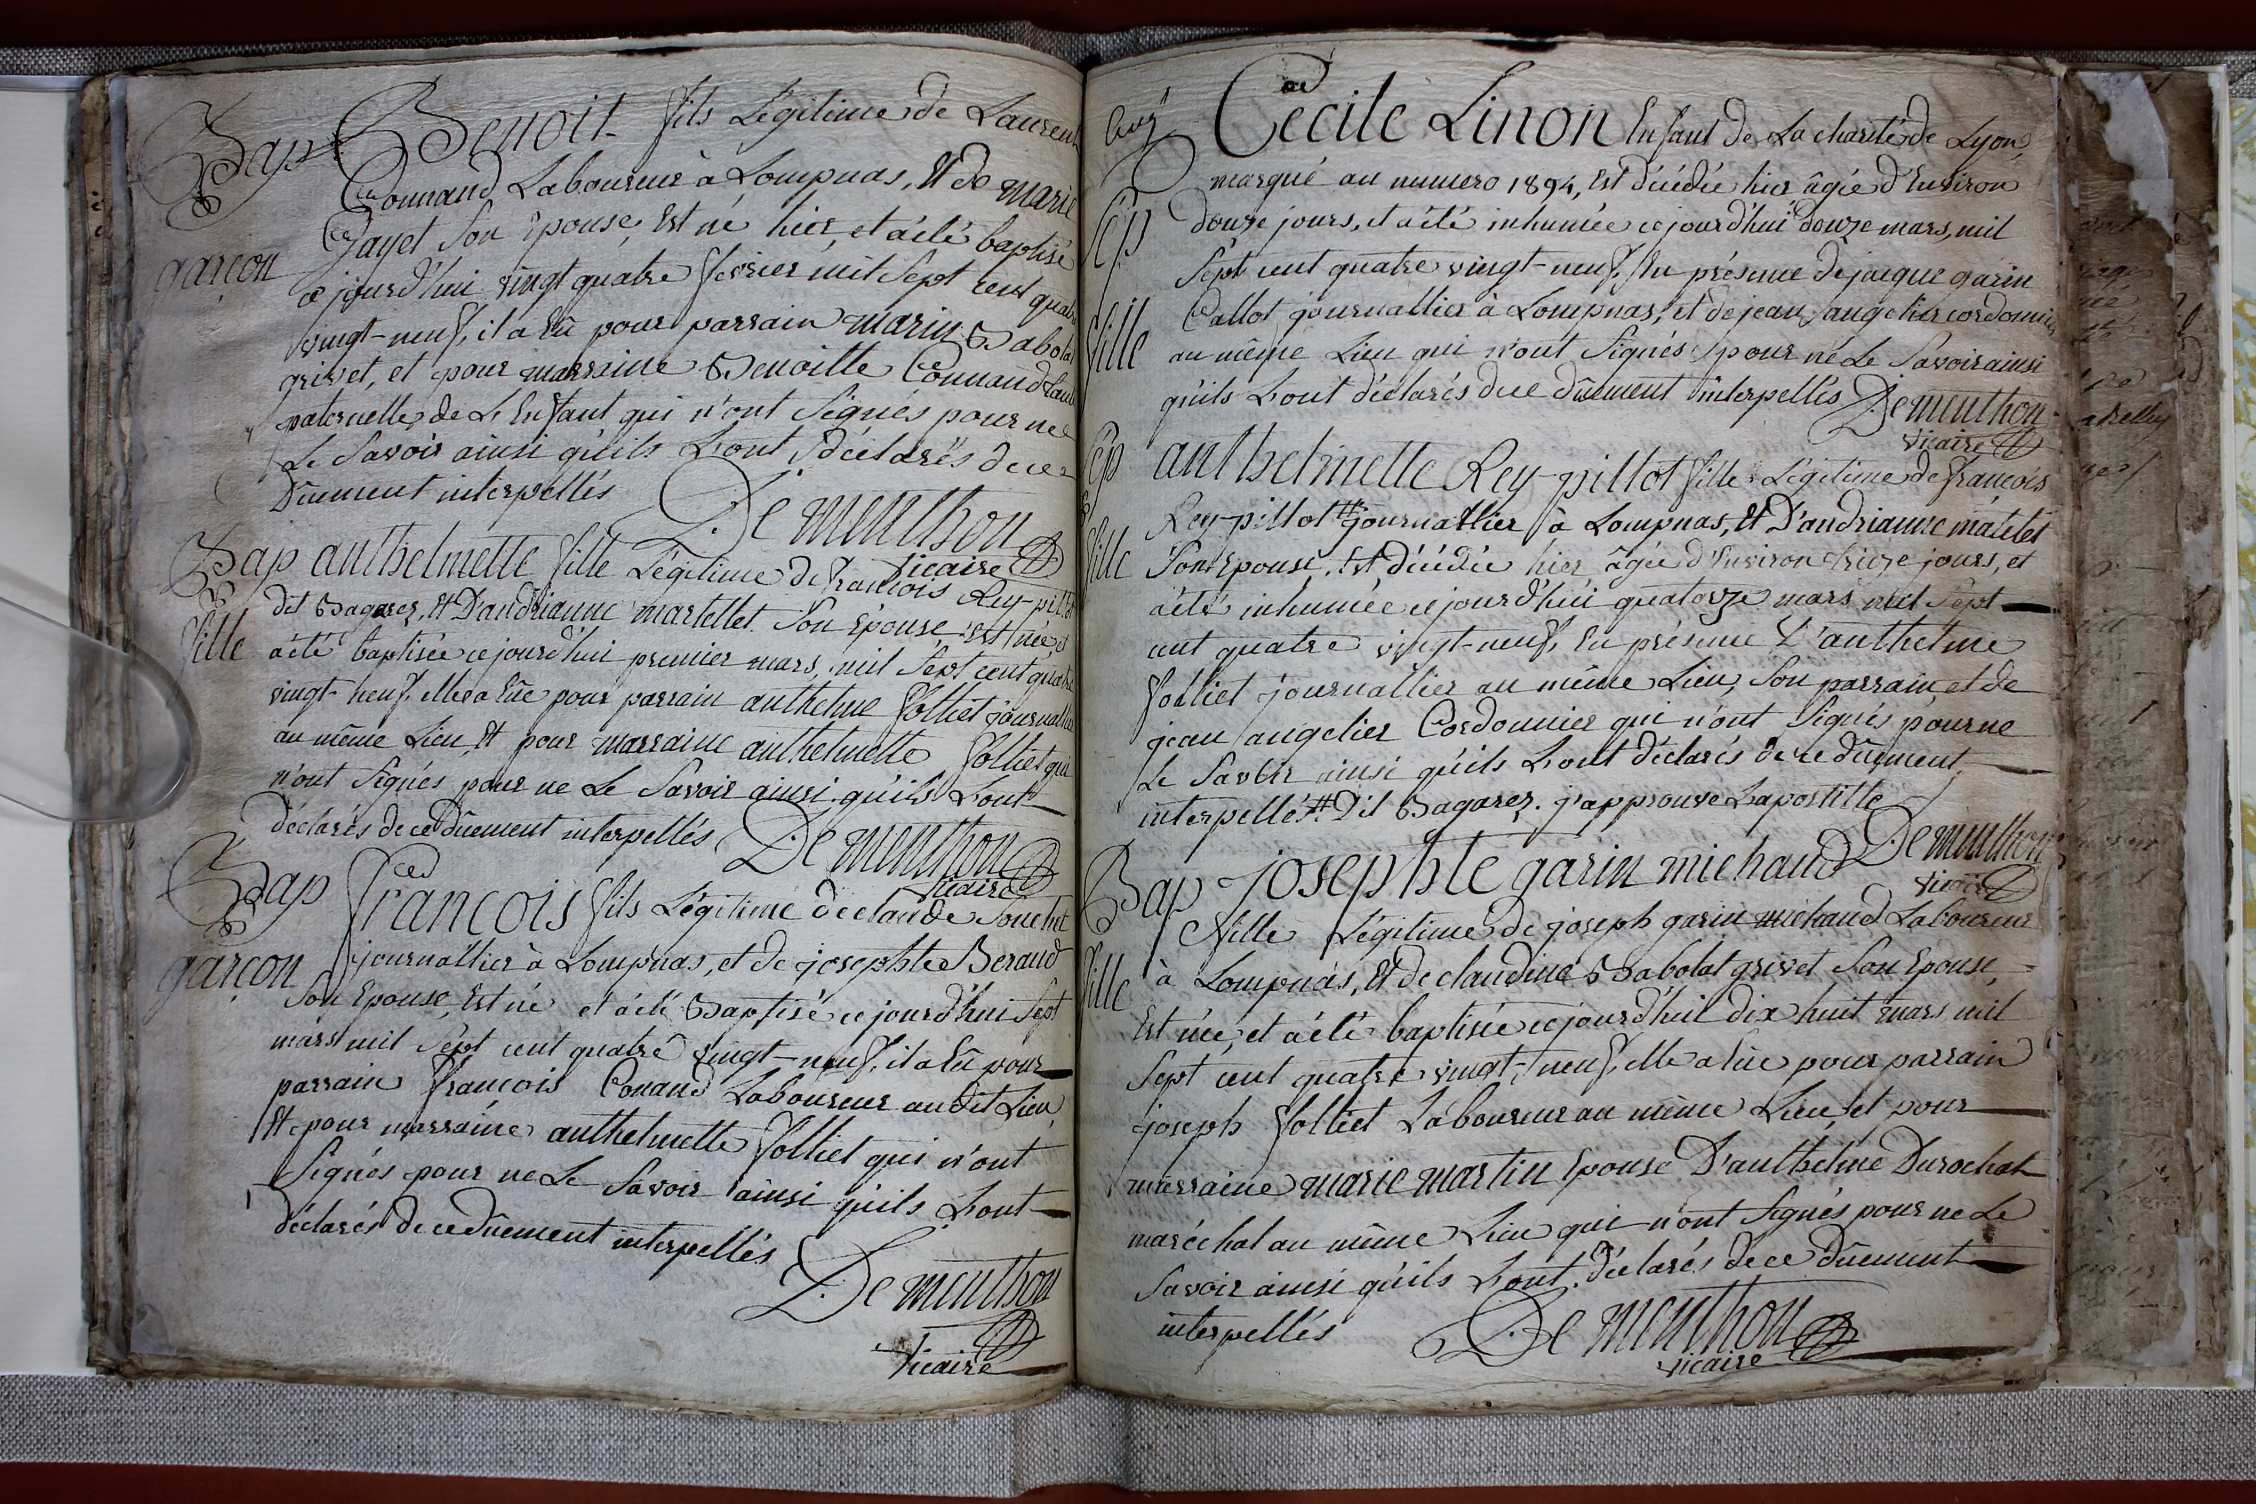 Bap Benoit fils Légitime de Laurent
Connand Laboureur à Lompnas, Et de marie
Gayet Son Epouse, Est né hier, et a été baptisé
garçon
ce jourd'hui vingt quatre fevrier mil Sept cent quatre
vingt-neuf, il a Eû pour parrain marin Babolat
grivet, et pour marraine Benoitte Connand tante
paternelle de L'Enfant qui n'ont Signés pour ne
Le Savoir ainsi qu'ils L'ont déclarés de ce
Dûement interpellés
De menthon
vicaire
Bap anthelmette fille Légitime de françois Rey-pillot
dit Bagarez, Et D'andrianne martellet Son Epouse, Est née, et
fille
a été baptisée ce jourd'hui premier mars, mil Sept cent quatre
vingt-neuf, elle a Eûe pour parrain anthelme folliet journallier
au même Lieu, Et pour marraine anthelmette folliet qui
n'ont Signés pour ne Le Savoir ainsi qu'ils L'ont
déclarés de ce Dûement interpellés
De menthon
vicaire
Bap françois fils Légitime de claude Souchet
journallier à Lompnas, et de josephte Beraud
garçon
Son Epouse, Est né et a été Baptisé ce jourd'hui Sept
mars mil Sept cent quatre vingt-neuf, il a Eû pour
parrain françois Conand Laboureur au dit Lieu,
Et pour marraine anthelmette folliet qui n'ont
Signés pour ne Le Savoir ainsi qu'ils L'ont
déclarés de ce dûement interpellés
De menthon
vicaire
Cecile Linon Enfant de La charité de Lyon,
marqué au numero 1894, Est décédée hier âgée d'Environ
Sép
douze jours, et a été inhumée ce jourd'hui douze mars, mil
Sept cent quatre vingt-neuf, En présence de jacque garin
fille
Callot journallier à Lompnas, et de jean angelier cordonnier
au même Lieu qui n'ont Signés pour ne Le Savoir ainsi
qu'ils L'ont déclarés de ce dûement interpellés
De menthon
vicaire
Sép anthelmette Rey-pillot fille Légitime de françois
Rey-pillot # journallier à Lompnas, Et D'andrianne matelet
fille
Son Epouse, Est décédée hier âgée d'Environ treize jours, et
a été inhumée ce jourd'hui quatorze mars mil Sept
cent quatre vingt-neuf, En présence D'anthelme
folliet journallier au même Lieu, Son parrain, et de
jean angelier Cordonnier qui n'ont Signés pour ne
Le Savoir ainsi qu'ils L'ont déclarés de ce dûement
interpellés # Dit Bagarez. j'approuve L'apostille
De menthon
vicaire
Bap josephte garin michaud
fille Légitime de joseph garin michaud Laboureur
fille
à Lompnas, Et de claudine Babolat grivet Son Epouse,
Est née, et a été baptisée ce jourd'hui dix huit mars mil
Sept cent quatre vingt-neuf, elle a Eûe pour parrain
joseph folliet Laboureur au même Lieu, et pour
marraine marie martin Epouse D'anthelme Durochat
maréchal au même Lieu qui n'ont Signés pour ne Le
Savoir ainsi qu'ils L'ont déclarés de ce dûement
interpellés
De menthon
vicaire